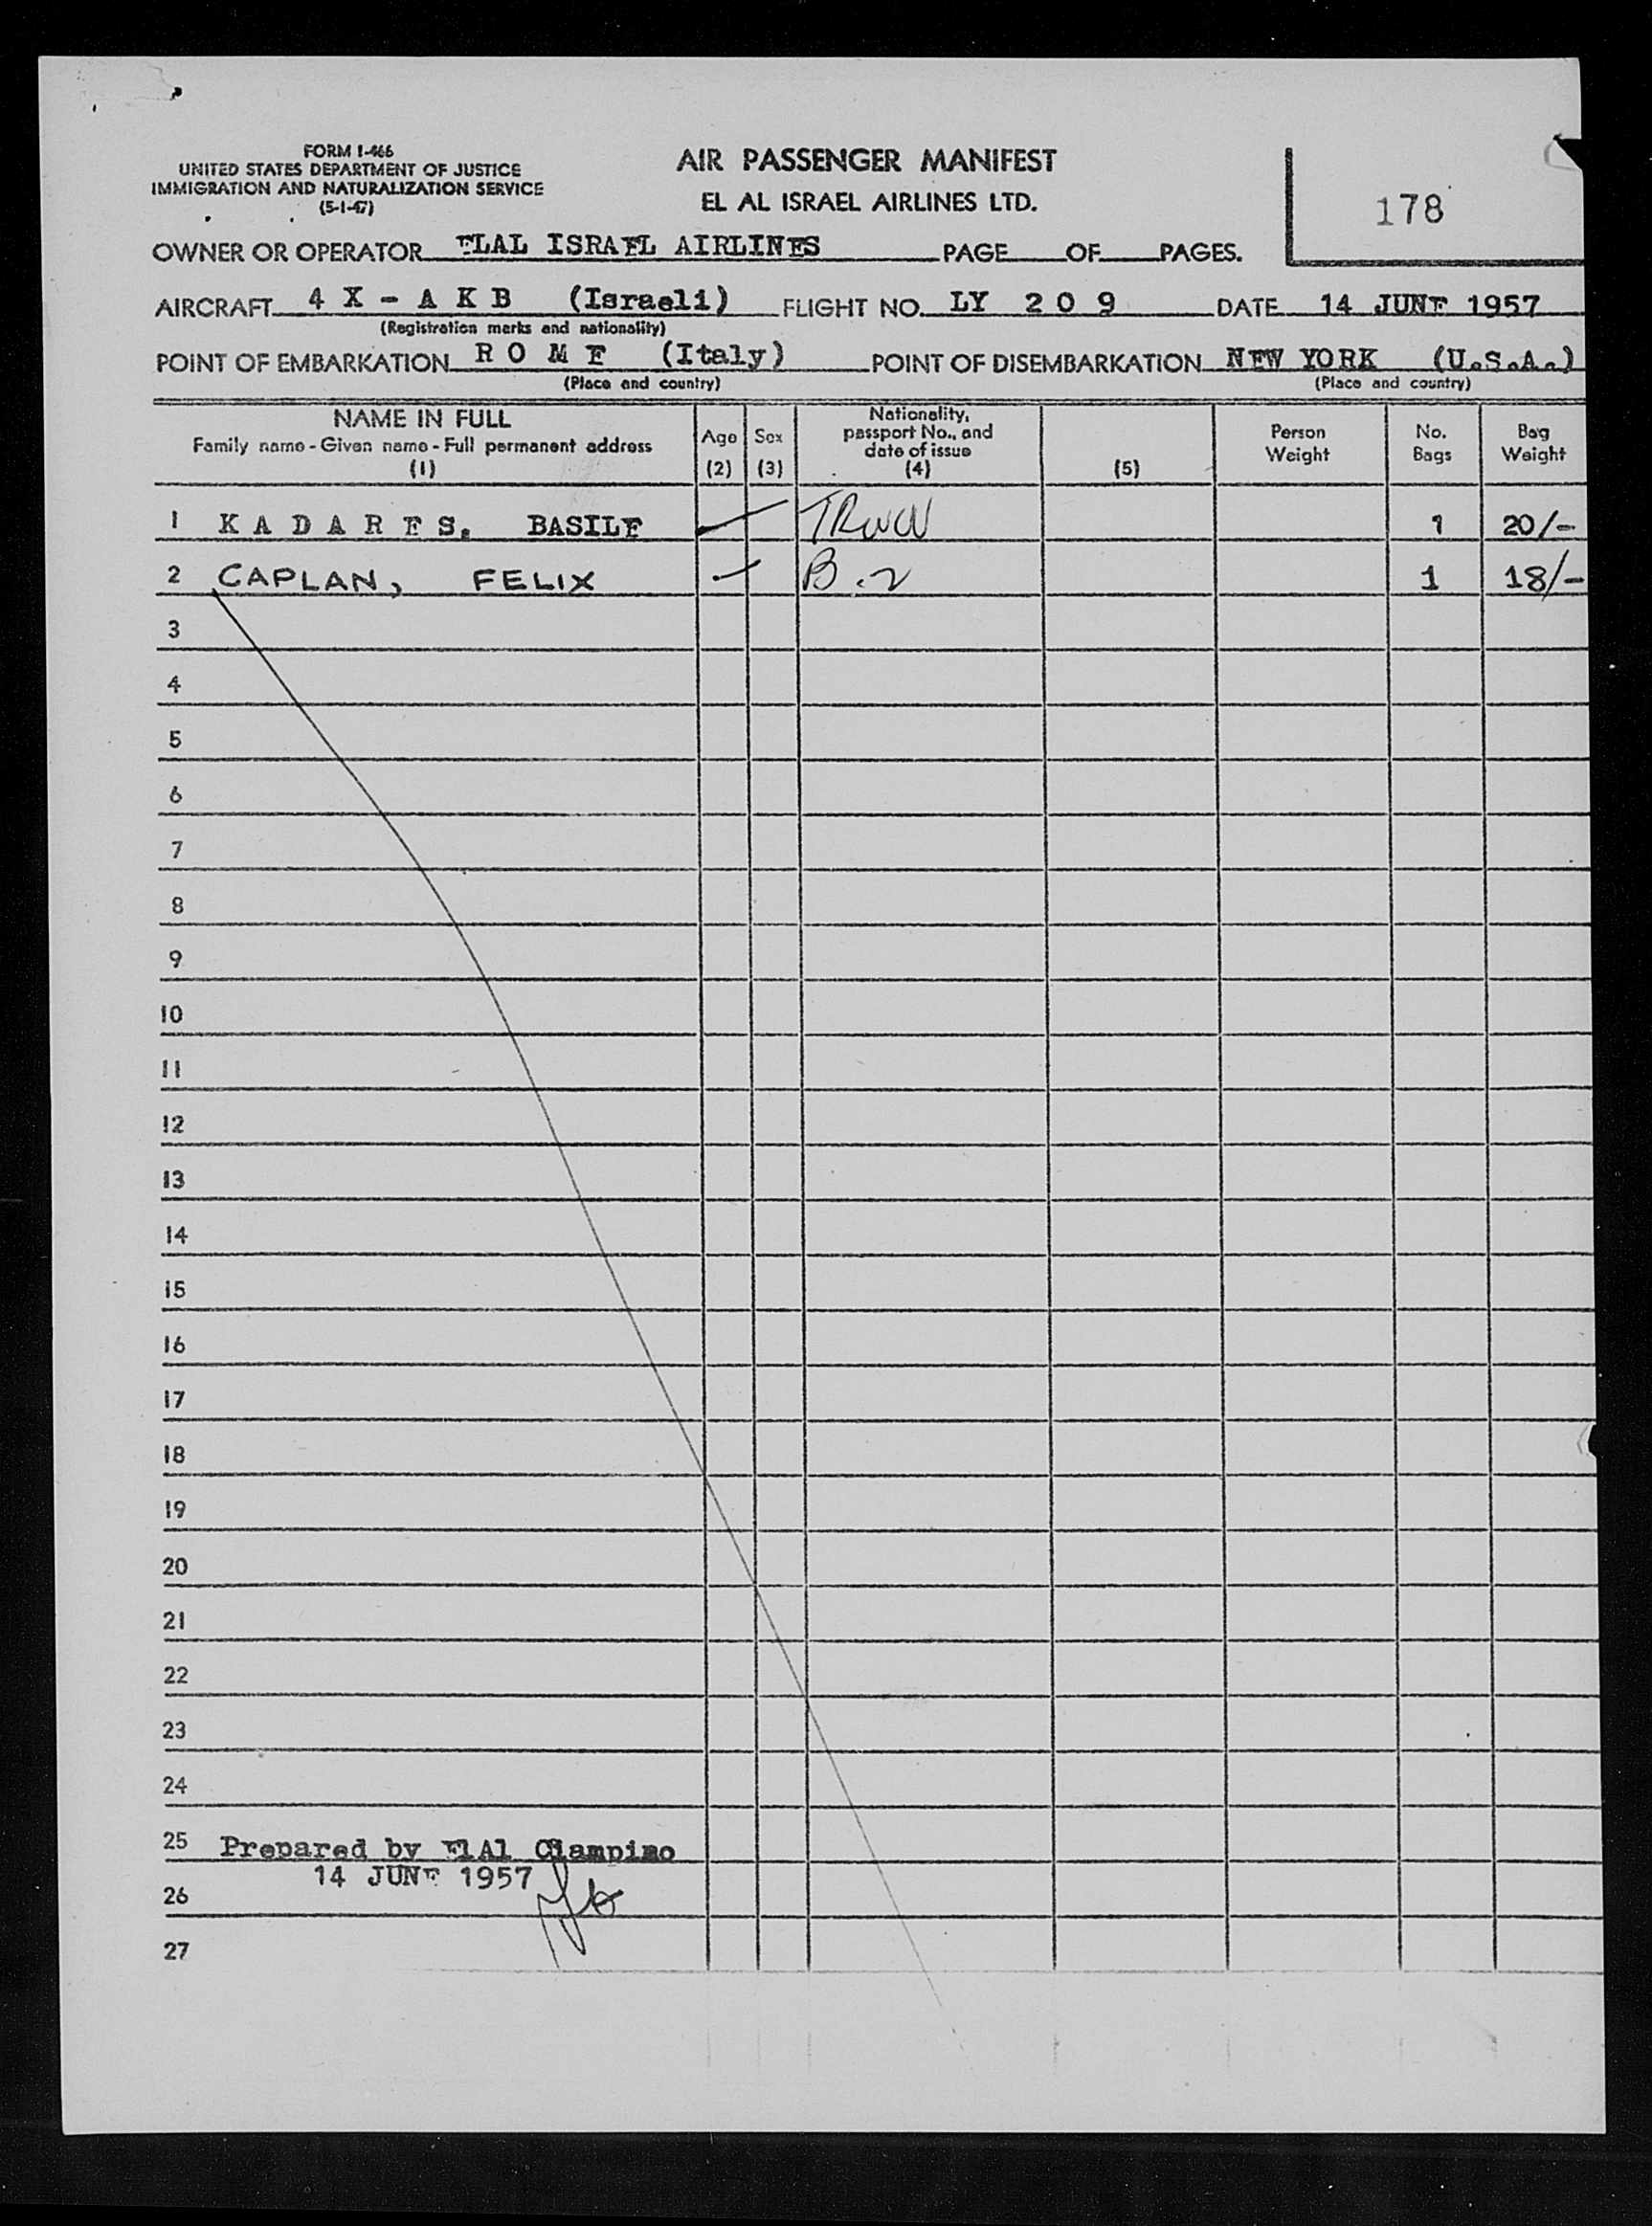 FORM I-466
UNITED STATES DEPARTMENT OF JUSTICE
IMMIGRATION AND NATURALIZATION SERVICE
(5-1-47)
AIR PASSENGER MANIFEST
EL AL ISRAEL AIRLINES LTD.
178
OWNER OR OPERATOR ELAL ISRAEL AIRLINES PAGE OF PAGES.
AIRCRAFT 4 X - A K B (Israeli) FLIGHT NO. LY 2 0 9 DATE 14 JUNE 1957
(Registration marks and nationality)
POINT OF EMBARKATION R O M E (Italy) POINT OF DISEMBARKATION NEW YORK (U.S.A.)
(Place and country) (Place and country)
NAME IN FULL
Family name - Given name - Full permanent address
(1)
Age
(2)
Sex
(3)
Nationality,
passport No., and
date of issue
(4)
(5)
Person
Weight
No.
Bags
Bag
Weight
1 K A D A R E S, BASILE TRWW 1 20/-
2 CAPLAN, FELIX B.2 1 18/-
3
4
5
6
7
8
9
10
11
12
13
14
15
16
17
18
19
20
21
22
23
24
25 Prepared by ElAl Ciampino
14 JUNE 1957
26
27